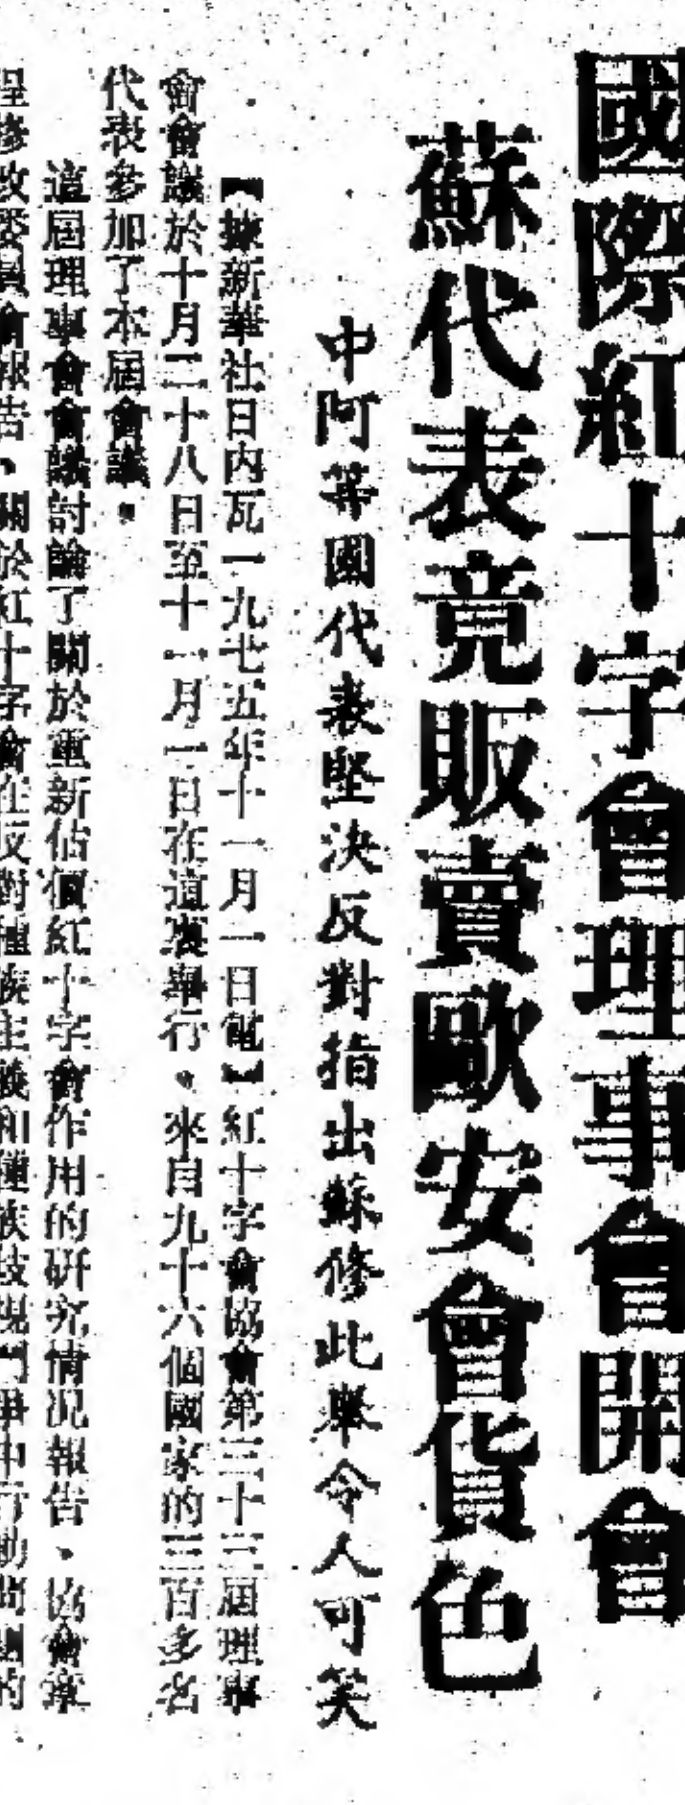 國際紅十字會理事會開會
蘇代表竟販賣歐安會貨色
中阿等國代表堅決反對指出蘇修此舉令人可笑
【據新華社日內瓦一九七五年十一月一日電】紅十字會協會第三十三屆理事
會會議於十月二十八日至十一月一日在這裏舉行。來自九十六個國家的三百多名
代表參加了本屆會議。
這屆理事會會議討論了關於重新估價紅十字會作用的研究情況報告、協會章
程修改委員會報告、關於紅十字會在反對種族主義和種族歧視鬥爭中行動問題的